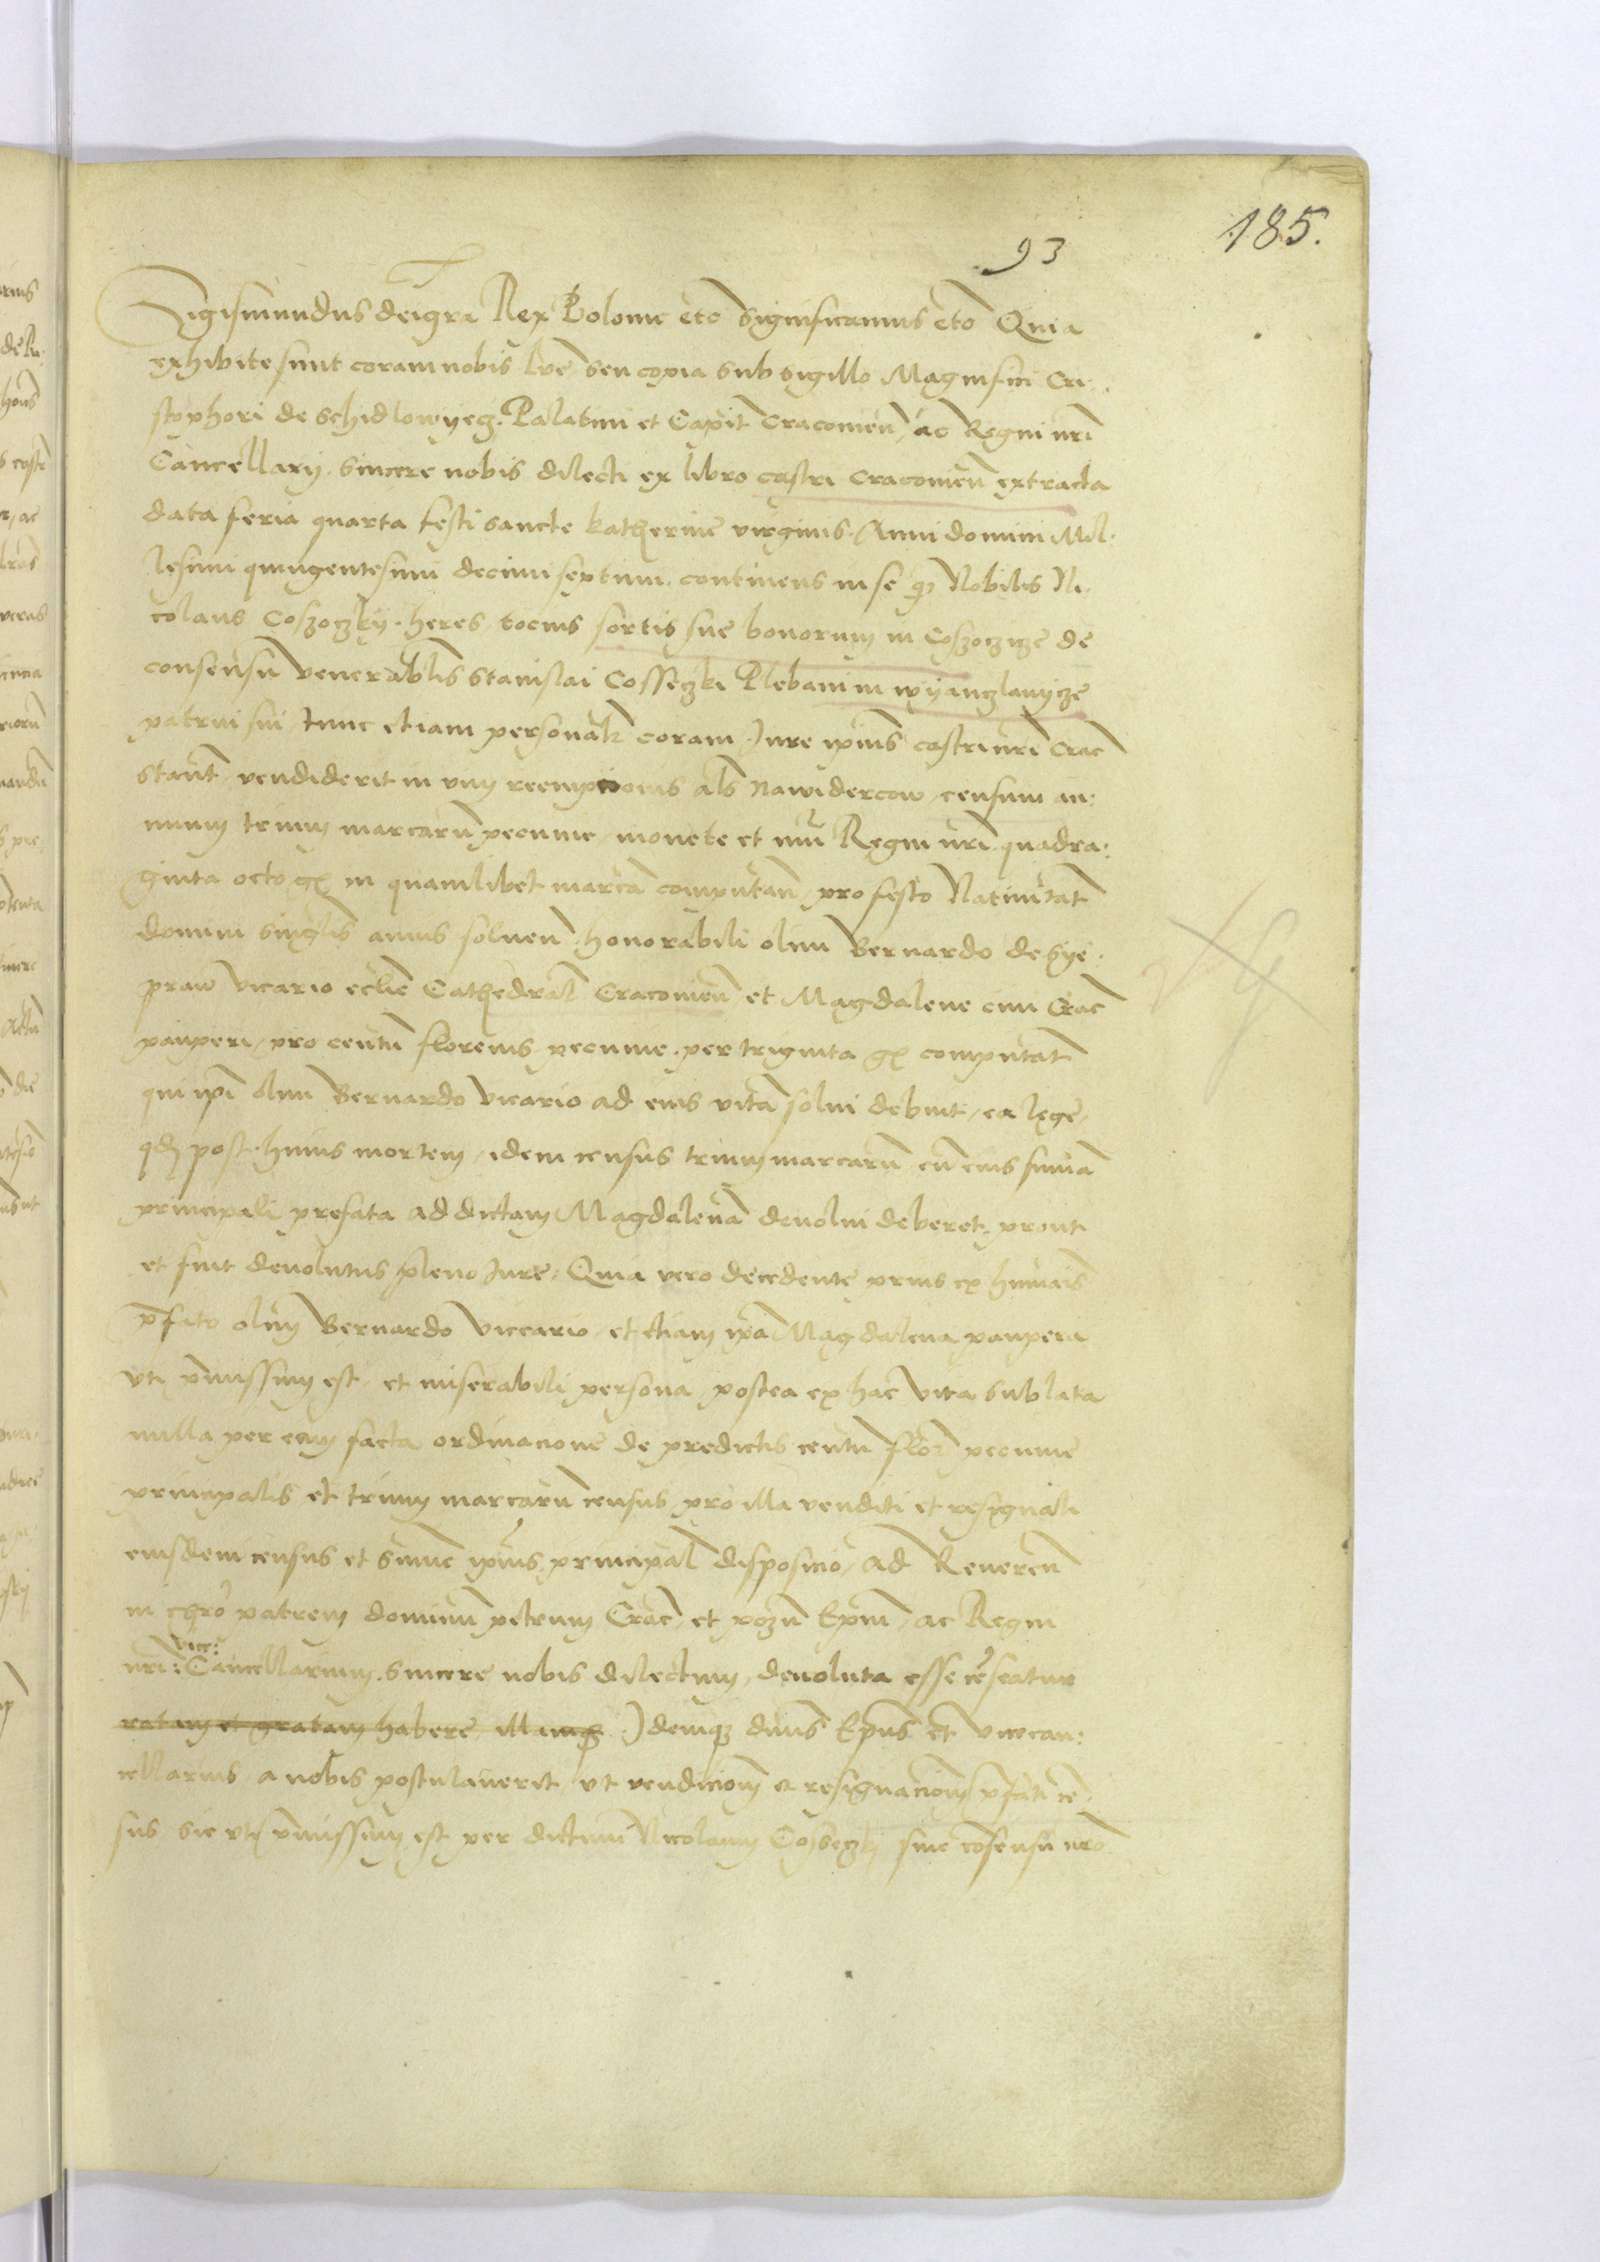 185.
93
Sigismundus dei gra Rex Polonie etc Significamus etc Quia
exhibite sunt coram nobis lre seu copia sub sigillo Magnifici Cri-
stophori de Schidlowyecz Palatini et Capit Cracovien ac Regni nri
Cancellarii sincere nobis dilecti ex libro castri Cracovien extracta
data feria quarta festi sancte Katherine virginis Anni domini Mil-
lesimi quingentesimi decimi septimi continens in se qd Nobilis Ni-
colaus Coszoczky heres tocius sortis sue bonorum in Coszoczicze de
consensu venerablis Stanislai Cosseczki Plebani in Wyanczlawycze
patrui sui tunc etiam personalr coram Iure ipius castri nri Crac
stant vendiderit in vim reempcionis als Nawidercow censum an-
nuum trium marcarum pecunie monete et nui Regni nri quadra-
ginta octo gr in quamlibet marca computan pro festo Nativitat
domini singlis annis solven honorabili olim Bernardo de Sye-
praw vicario ecclie Cathedral Cracovien et Magdalene civi Crac
pauperi pro centu florenis pecunie per triginta gr computat
qui ipi olim Bernardo vicario ad eius vita solui debuit ea lege
qd post huius mortem idem census trium marcaru cu eius suma
principali prefata ad dictam Magdalena devolui deberet prout
et fuit devolutus pleno Iure Quia vero decedente prius ex humais
pfato olim Bernardo viccario et etiam ipa Magdalena paupera
uti pmissum est et miserabili persona postea ex hac vita sublata
nulla per eam facta ordinacione de predictis centu flor pecunie
principalis et trium marcaru census pro illa venditi et resignati
eiusdem census et sume ipius principal disposicio ad Reveren
in chro patrem dominu petrum Crac et pozn Epm ac Regni
nri vice Cancellarium sincere nobis dilectum devoluta esse censeatur
ratam et gratam habere illamqz Idemqz dnus Epus et vicecan-
cellarius a nobis postulaverit ut vendicionem et resignacionem pfati ce-
sus sic uti pmissum est per dictum Nicolaum Cosseczky sine cosensu nro